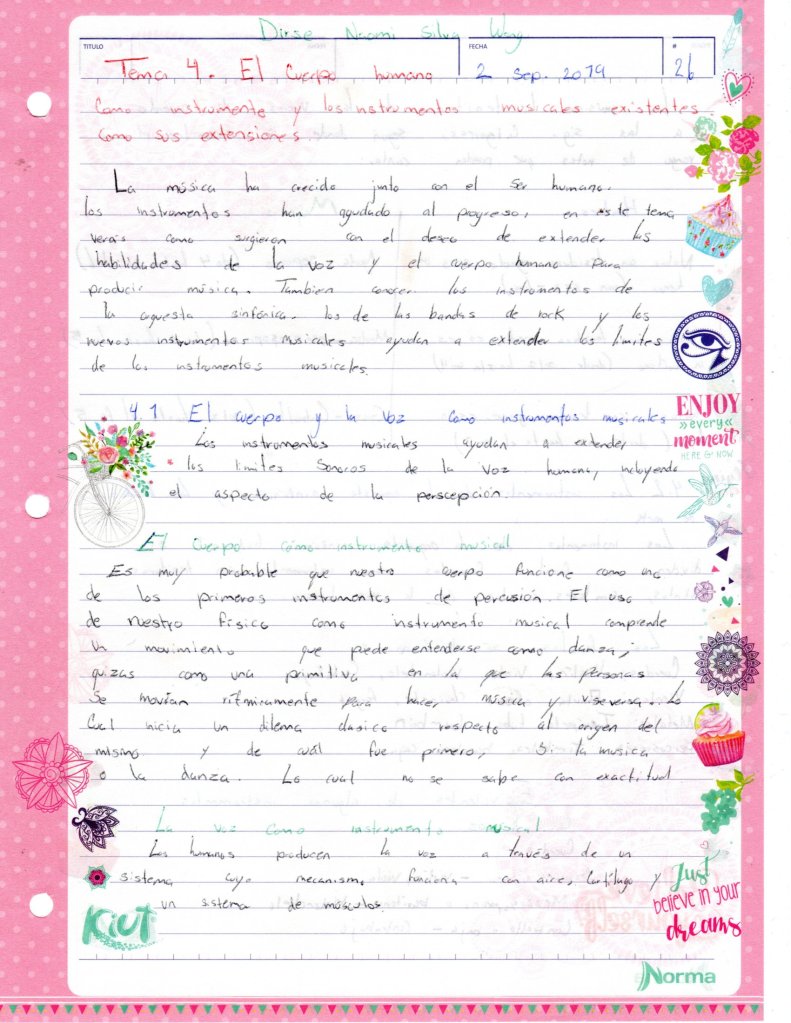 Dirse Naomi Silva Wong
TITULO FECHA #
Tema 4. El Cuerpo humano 2 sep. 2019 26
Como instrumente y los nstrumentos musicales existentes
Como sus extensiones.
La música ha crecido junto con el ser humano.
los instrumentos han ayudado al progreso, en este tema
verás como surgieron con el deseo de extender las
habilidades de la voz y el cuerpo humano para
producir música. Tambien conocer los instrumentos de
la orquesta sinfónica. los de las bandas de rock y los
nuevos instrumentos musicales ayudan a extender los limites
de los instrumentos musicales.
4.1 El cuerpo y la voz como instrumentos musicales
Los instrumentos musicales ayudan a extender
los limites Sonoros de la voz humana, incluyendo
el aspecto de la perscepción.
El cuerpo cómo instrumento musical
Es muy probable que nuestro cuerpo funcione como uno
de los primeros instrumentos de percusión. El uso
de nuestro físico como instrumento musical comprende
un movimiento que puede entenderse como danza;
quizas como una primitiva en la que las personas
se movían rítmicamente para hacer música y viseversa. Lo
Cual inicia un dilema clasico respecto al origen del
mismo y de cuál fue primero, Si la musica
o la danza. Lo cual no se sabe con exactitud
La voz como instrumento musical
Los humanos producen la voz a través de un
sistema cuyo mecanismo funciona con aire, Cartílago y
un sistema de músculos.
ENJOY
every
moment
HERE & NOW
Just
believe in your
dreams
Kiut
Norma